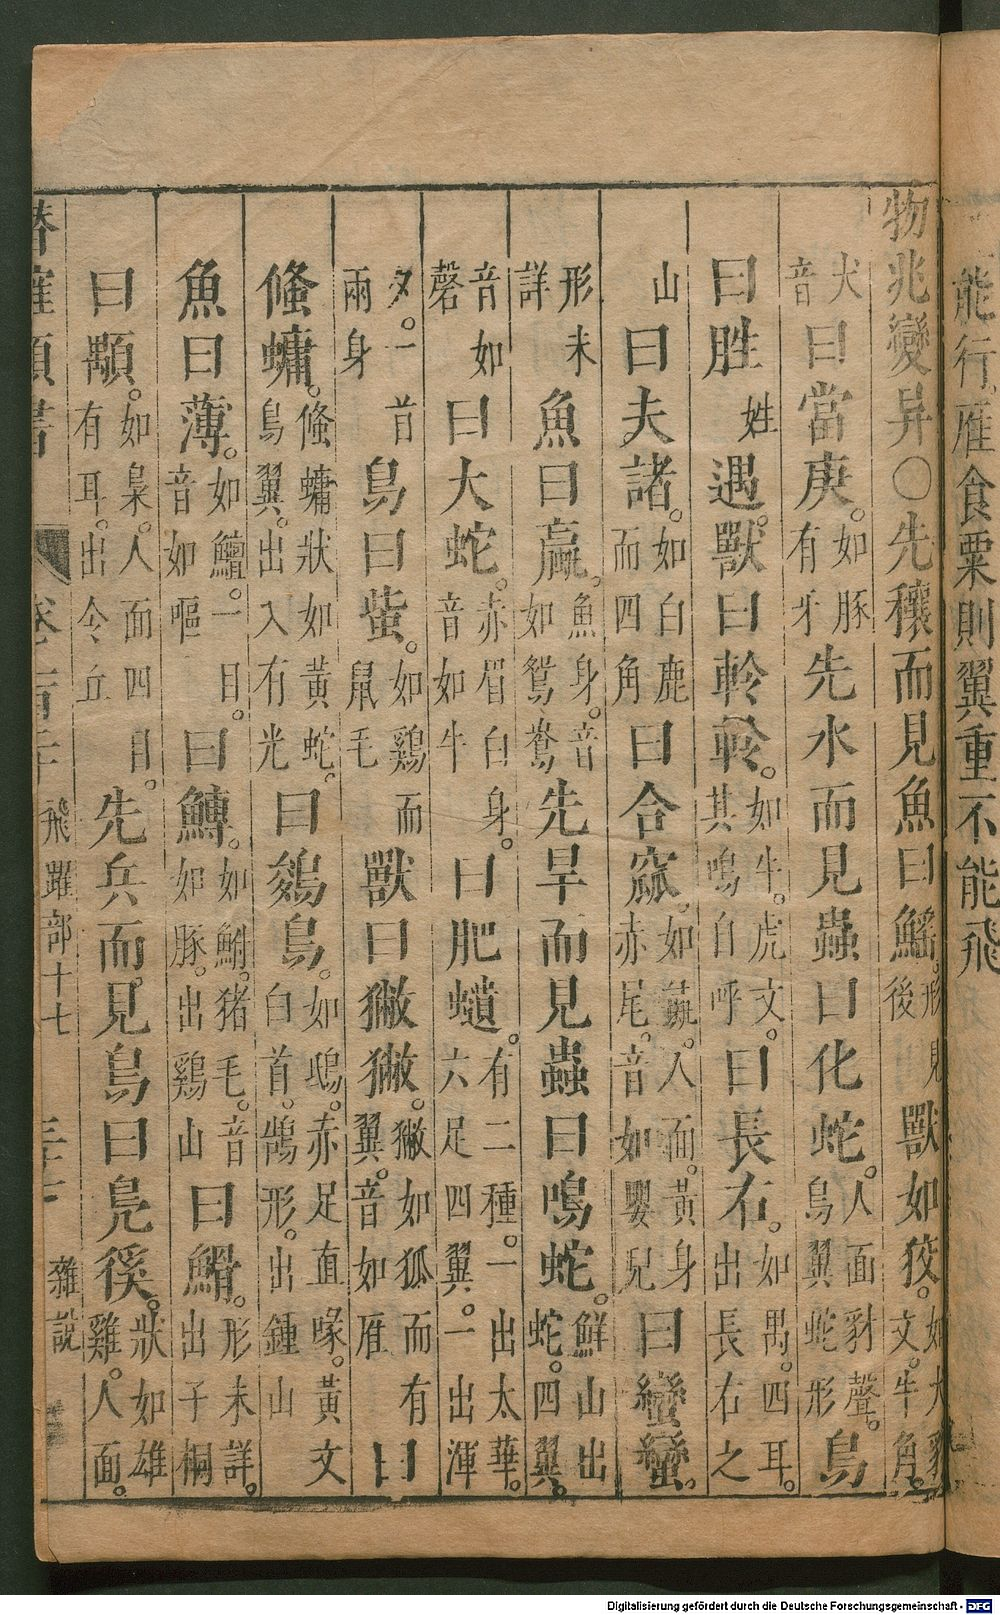 能行雁食粟則翼重不能飛
物兆變异○先穰而見魚曰鰩。形見後獸如狡。如犬豹文。牛角。
犬音曰當庚。如豚有牙先水而見蟲曰化蛇。人面豺聲。鳥翼蛇形鳥
曰胜姓遇。獸曰軨軨。如牛。虎文。其鳴自呼曰長右。如禺。四耳。出長右之
山曰夫諸。如白鹿而四角曰合窳。如彘人面。黃身赤尾。音如嬰兒曰蠻蠻。
形未詳魚曰蠃。魚身。音如鴛鴦先旱而見蟲曰鳴蛇。鮮山出蛇。四翼。
音如磬曰大蛇。赤眉白身。音如牛曰肥𧔥。有二種。一出太華。六足四翼。一出渾
夕。一首兩身鳥曰䖪。如鷄而鼠毛獸曰獙獙。獙如狐而有翼。音如雁曰
鯈䗤。鯈䗤狀如黃蛇。鳥翼。出入有光曰鵕鳥。如鴟。赤足直喙。黃文白首。鵠形。出鍾山
魚曰薄。如鱣。一目。音如嘔曰鱄。如鮒。猪毛。音如豚。出鷄山曰䱻。形未詳。出子桐
曰顒。如梟。人面四目。有耳。出令丘先兵而。見鳥曰鳧徯。狀如雄雞。人面。
飛躍部十七 雜說
Digitalisierung gefördert durch die Deutsche Forschungsgemeinschaft - DFG